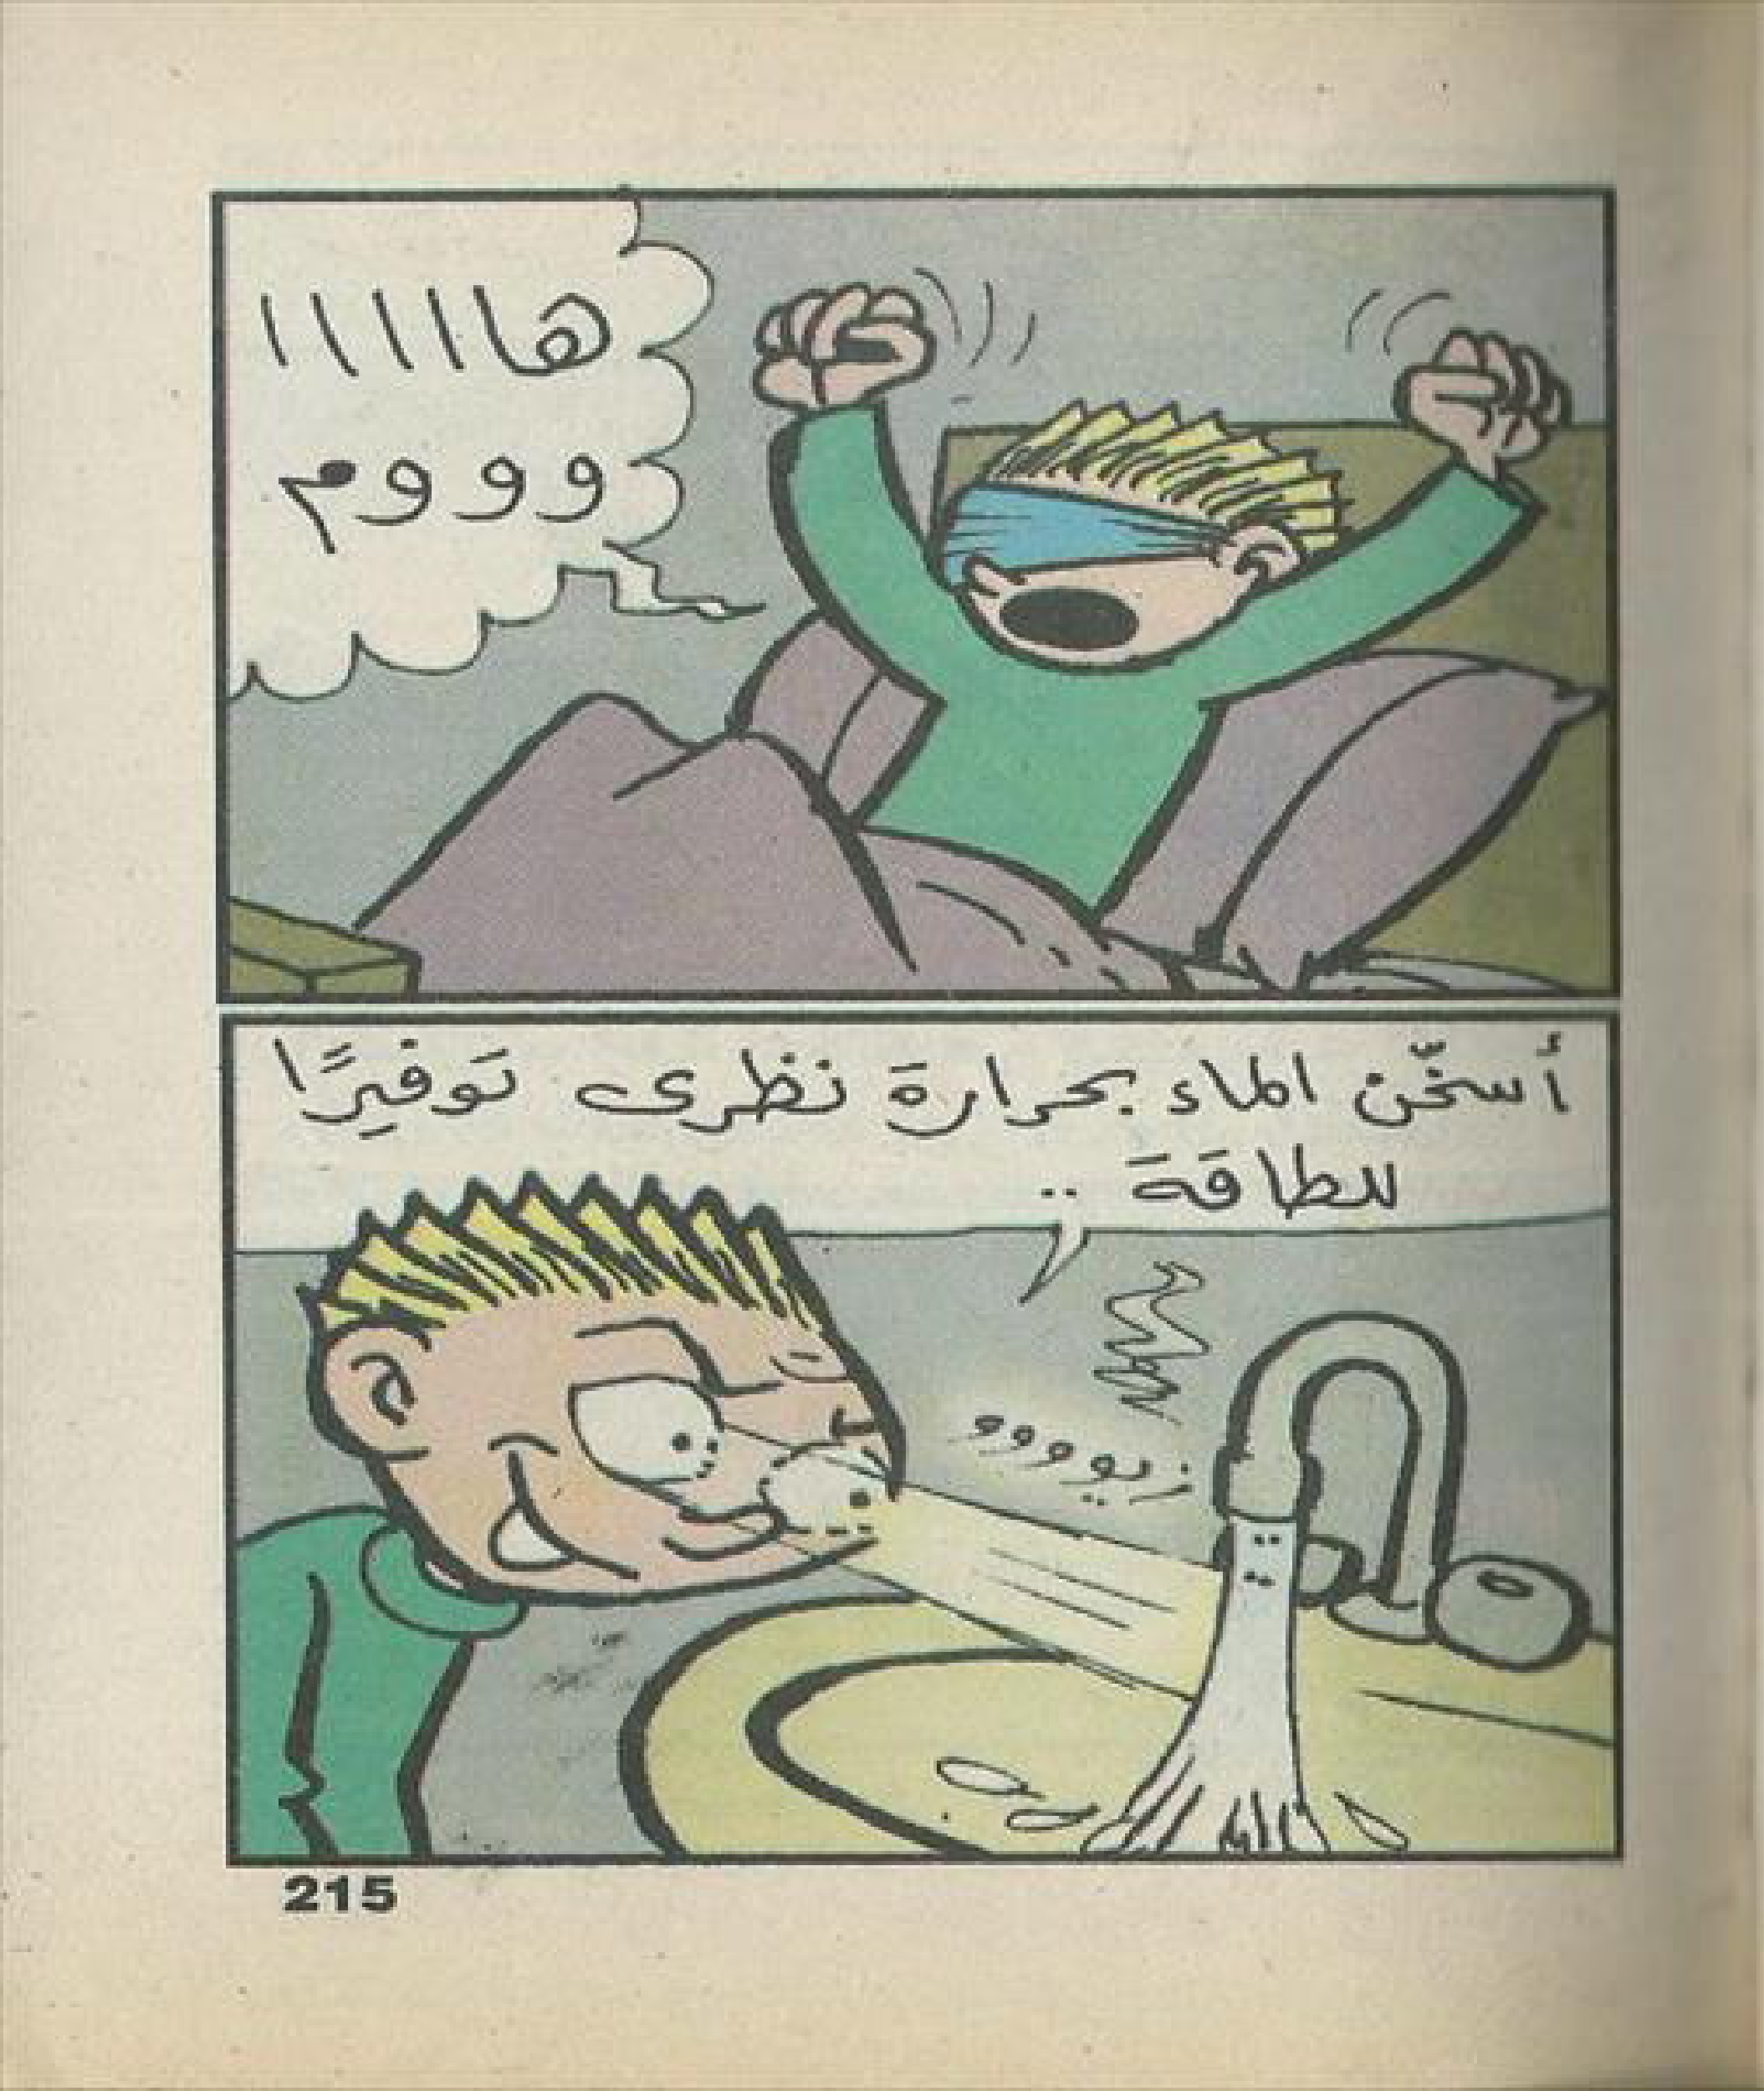 هااااا
وووم
أسخّن الماء بحرارة نظرى توفيرًا
للطاقة ..
زيوووو
215